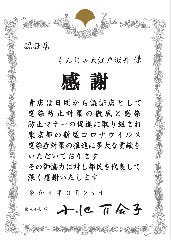 感謝
貴店は日頃から認証店として
感染防止対策の徹底と感染
防止マナーの促進に取り組まれ
東京都の新型コロナウイルス
感染症対策の推進に多大な貢献を
いただいております
その御協力に対し都民を代表して
深く感謝いたします
小池百合子